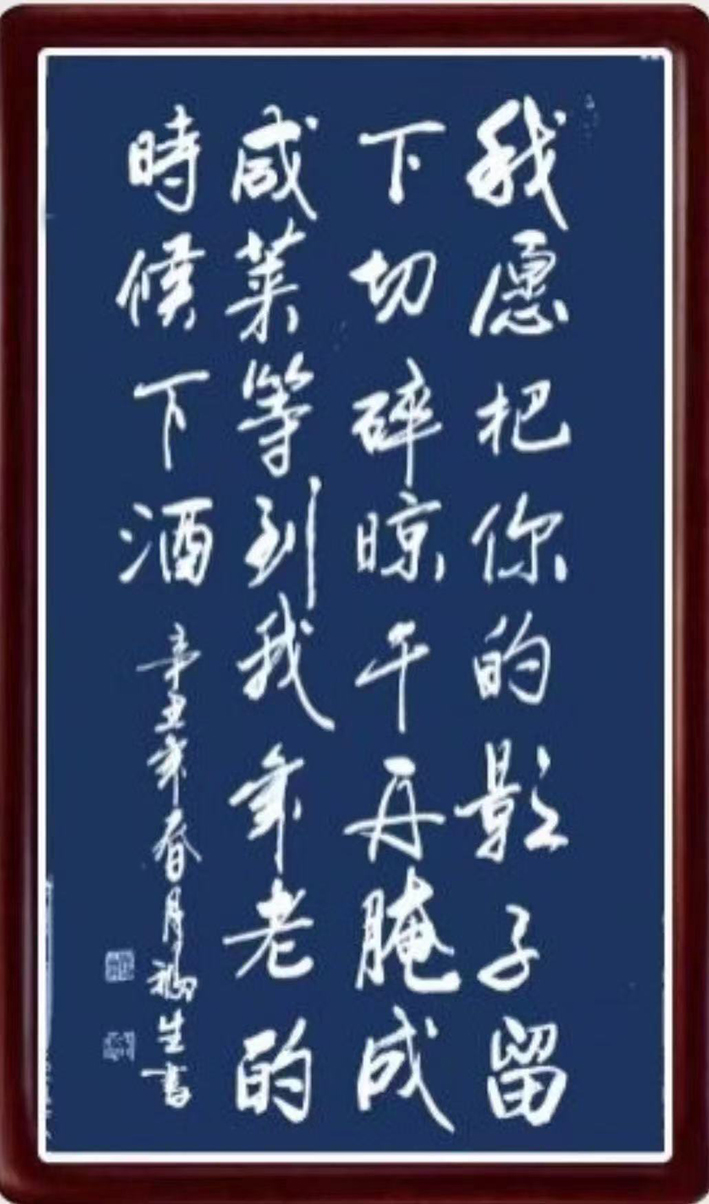 我愿把你的影子留
下切碎晾干再腌成
咸菜等到我年老的
時候下酒
辛丑年春月福生書